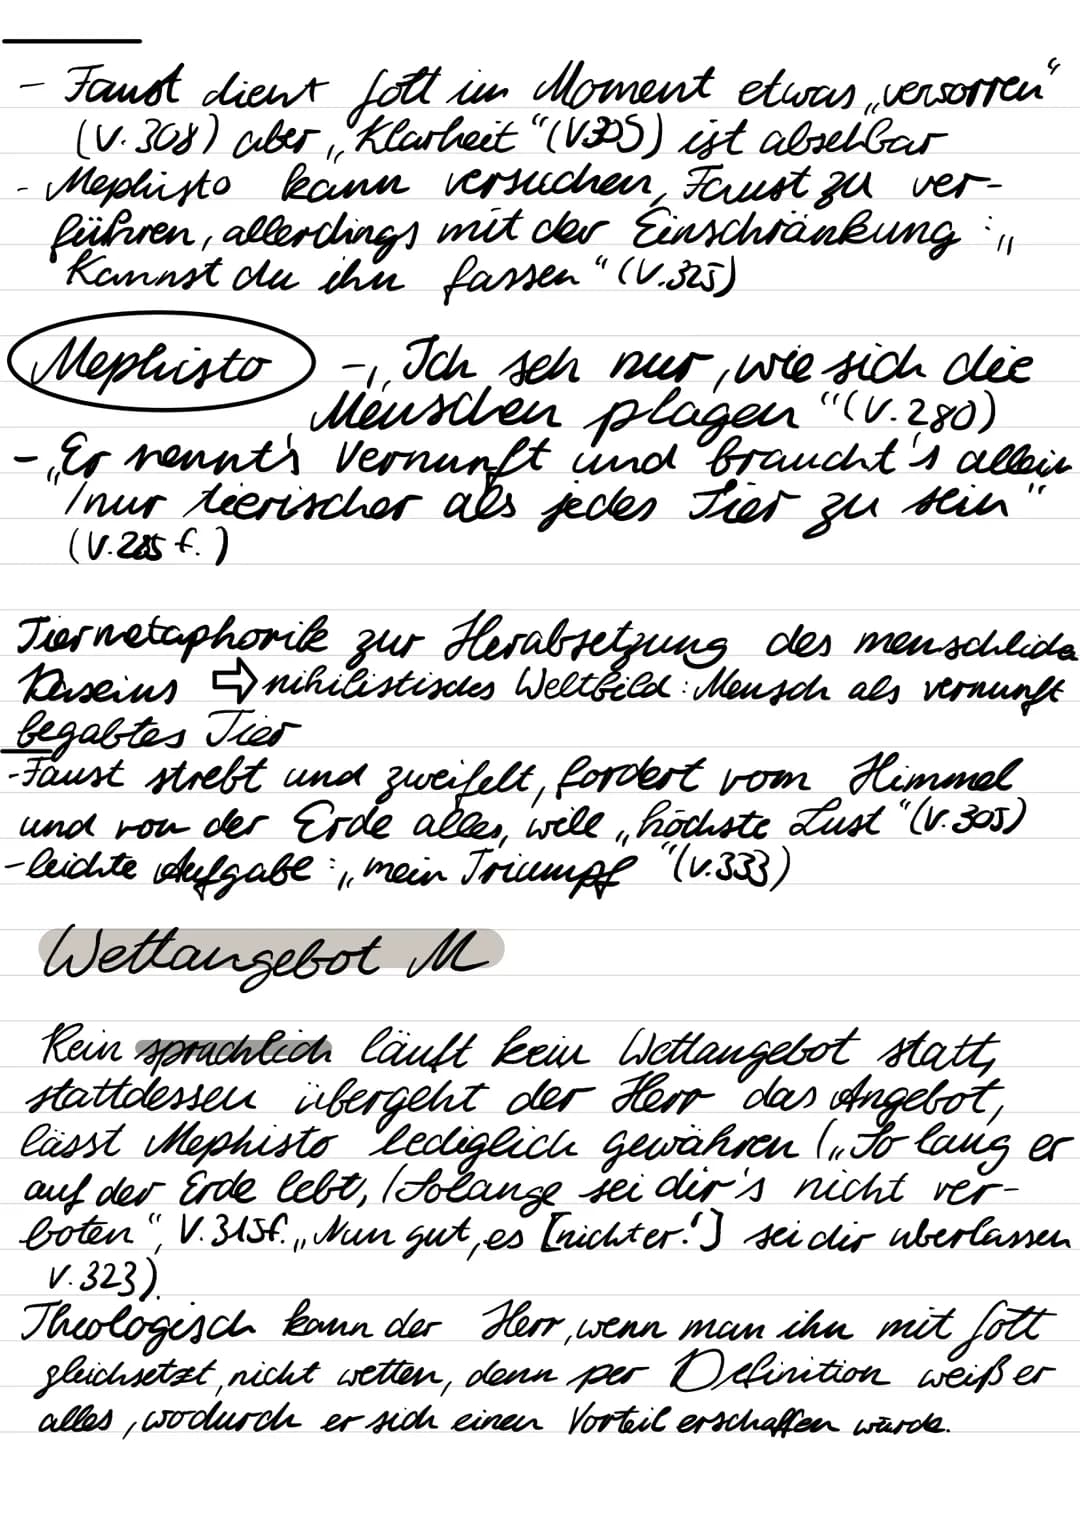 - Faust dient Gott im Moment etwas „verworren"
(V. 308) aber „Klarheit" (V.305) ist absehbar
- Mephisto kann versuchen, Faust zu ver-
führen, allerdings mit der Einschränkung: „
Kannst du ihn fassen" (V.325)
Mephisto - „Ich seh nur, wie sich die
Menschen plagen" (V. 280)
- „Er nennt's Vernunft und braucht's allein
/nur tierischer als jedes Tier zu sein"
(V.285 f.)
Tiermetaphorik zur Herabsetzung des menschliche
Daseins ⇨ nihilistisches Weltbild: Mensch als vernunft
begabtes Tier
- Faust strebt und zweifelt, fordert vom Himmel
und von der Erde alles, will „höchste Lust" (V. 305)
- leichte Aufgabe: „mein Triumpf" (V.333)
Wettangebot M
Rein sprachlich läuft kein Wettangebot statt,
stattdessen übergeht der Herr das Angebot,
lässt Mephisto lediglich gewähren („So lang er
auf der Erde lebt, / Solange sei dir's nicht ver-
boten", V. 315f. „Nun gut, es [nicht er!] sei dir uberlassen
V. 323).
Theologisch kann der Herr, wenn man ihn mit Gott
gleichsetzt, nicht wetten, denn per Definition weiß er
alles, wodurch er sich einen Vorteil erschaffen würde.